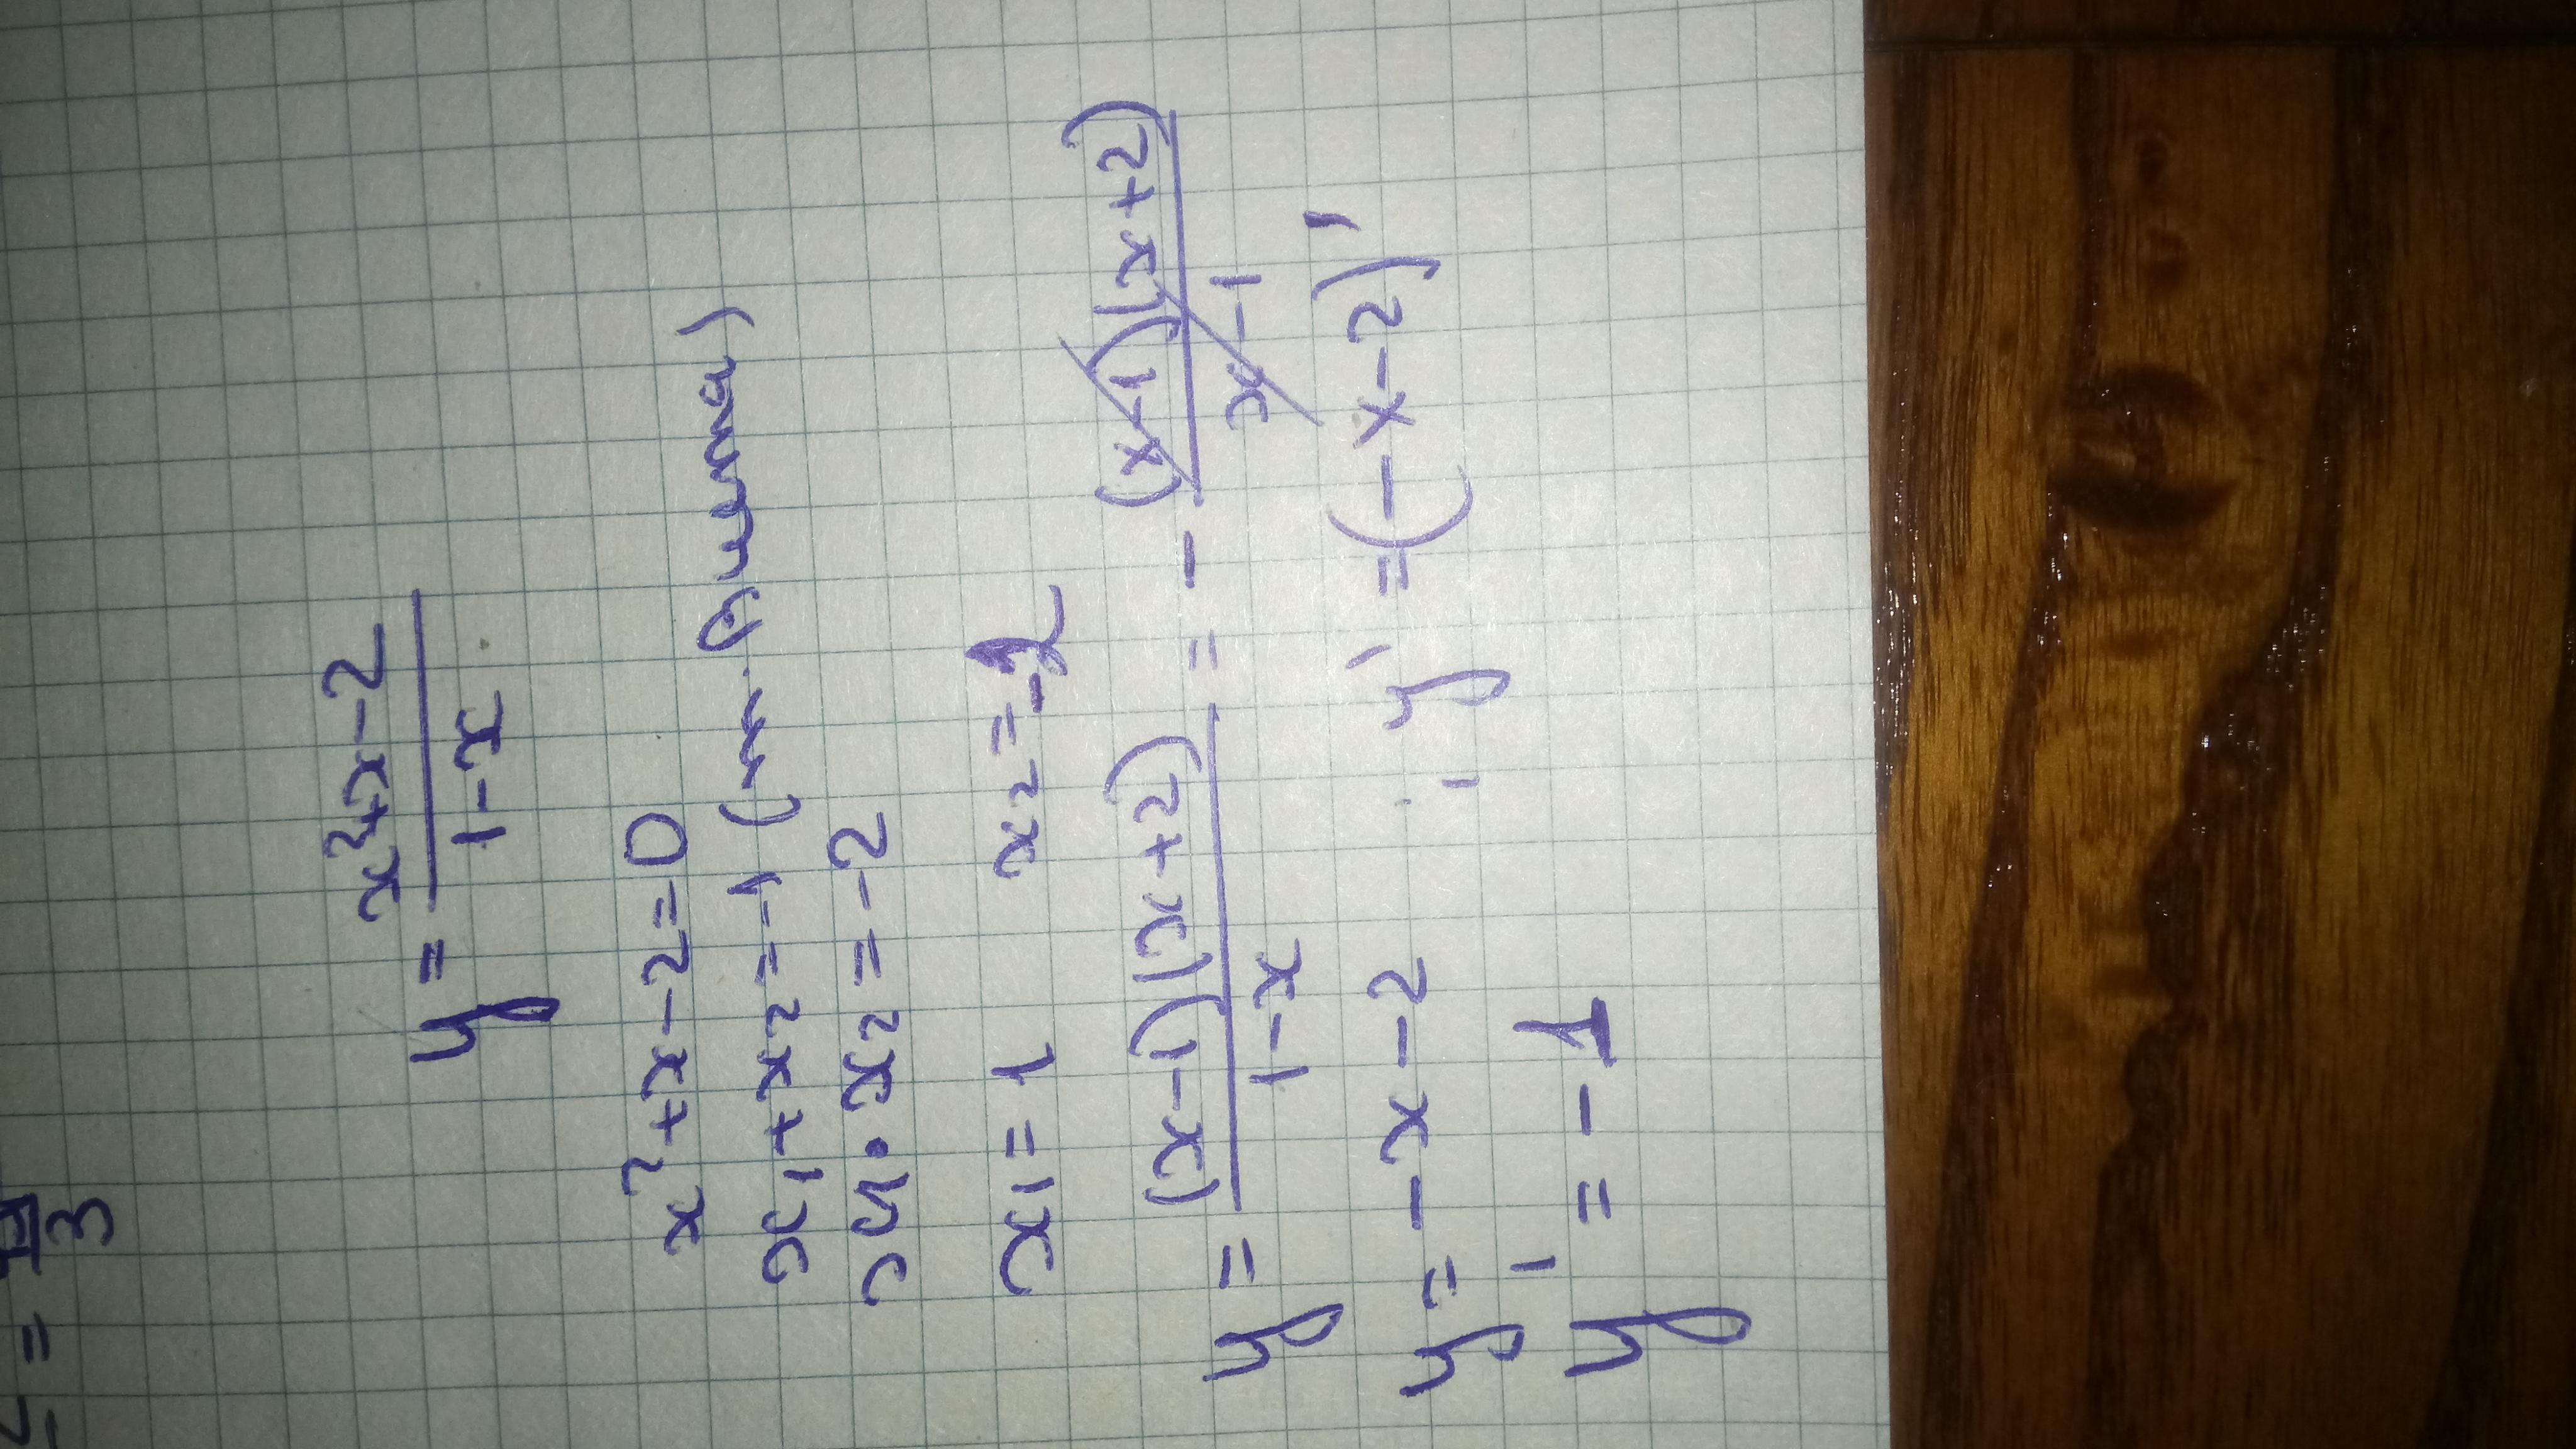 = π/3
y = (x²+x-2)/(1-x)
x²+x-2=0
x₁+x₂=-1 (т. Виета)
x₁·x₂=-2
x₁=1 x₂=-2
y = (x-1)(x+2)/(1-x) = - (x-1)(x+2)/(x-1)
y = -x-2 y' = (-x-2)'
y' = -1